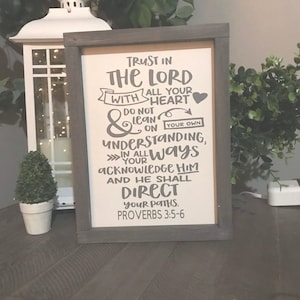 TRUST IN
THE LORD
WITH ALL YOUR
HEART
& DO NOT
lean
ON YOUR OWN
UNDERSTANDING,
IN ALL
YOUR WAYS
ACKNOWLEDGE HIM
AND HE SHALL
DIRECT
your paths.
PROVERBS 3:5-6